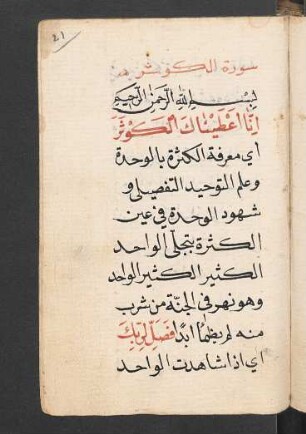 21
سورة الكوثر
بِسْمِ اللهِ الرَّحْمٰنِ الرَّحِيمِ
اِنَّا اَعْطَيْنَاكَ الْكَوْثَرَ
اي معرفة الكثرة بالوحدة
وعلم التوحيد التفصيلي و
شهود الوحدة في عين
الكثرة بتجلي الواحد
الكثير الكثير الواحد
وهو نهر في الجنة من شرب
منه لم يظمأ ابدًا فَصَلِّ لِرَبِّكَ
اي اذا شاهدت الواحد